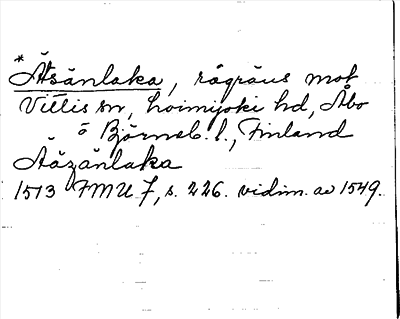 *Äsänlaka, rågräns mot
Vittis sn, Loimijoki hd, Åbo
o Björneb. l., Finland
Ääzänlaka
1513 FMU 7, s. 226. vidim. av 1549.